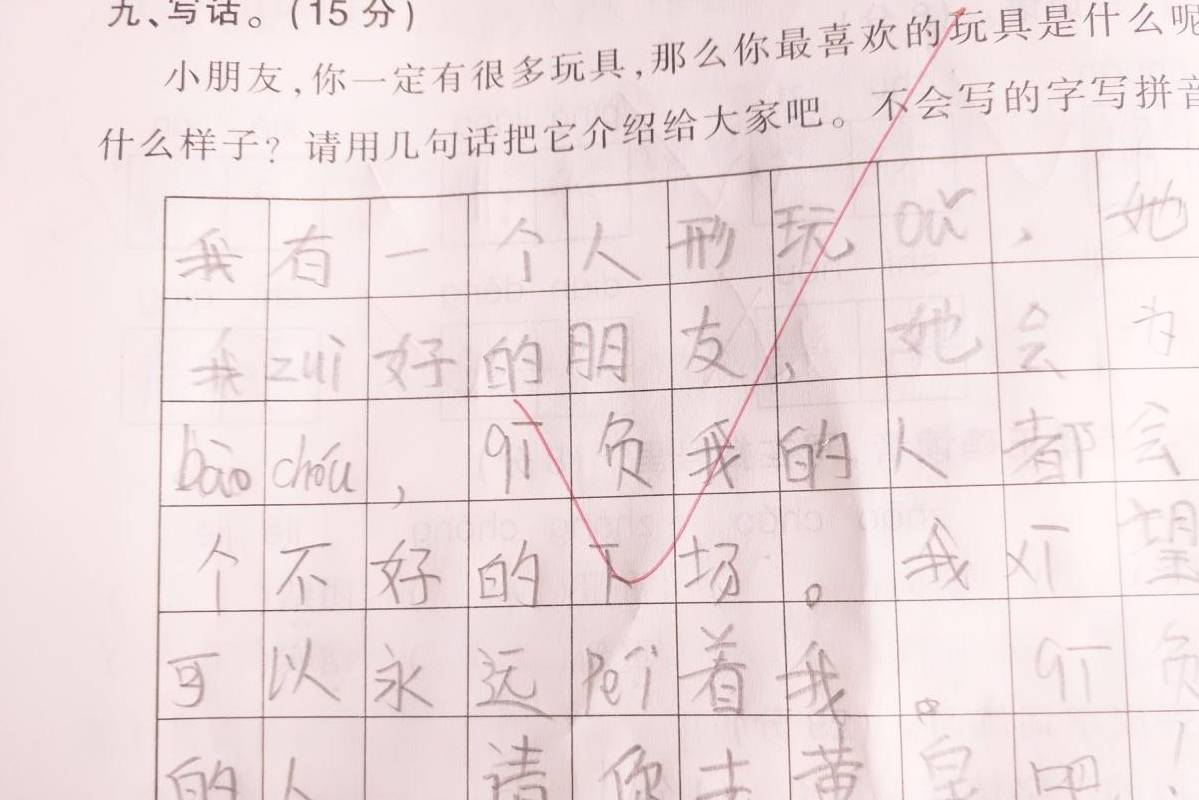 九、写话。(15分)
小朋友,你一定有很多玩具,那么你最喜欢的玩具是什么呢
什么样子?请用几句话把它介绍给大家吧。不会写的字写拼音
我有一个人形玩ǒu,她
我zuì好的朋友,她会为
bào chóu,qī负我的人都会
个不好的下场。我xī望
可以永远péi着我。qī负
的人 请你去黄泉吧!